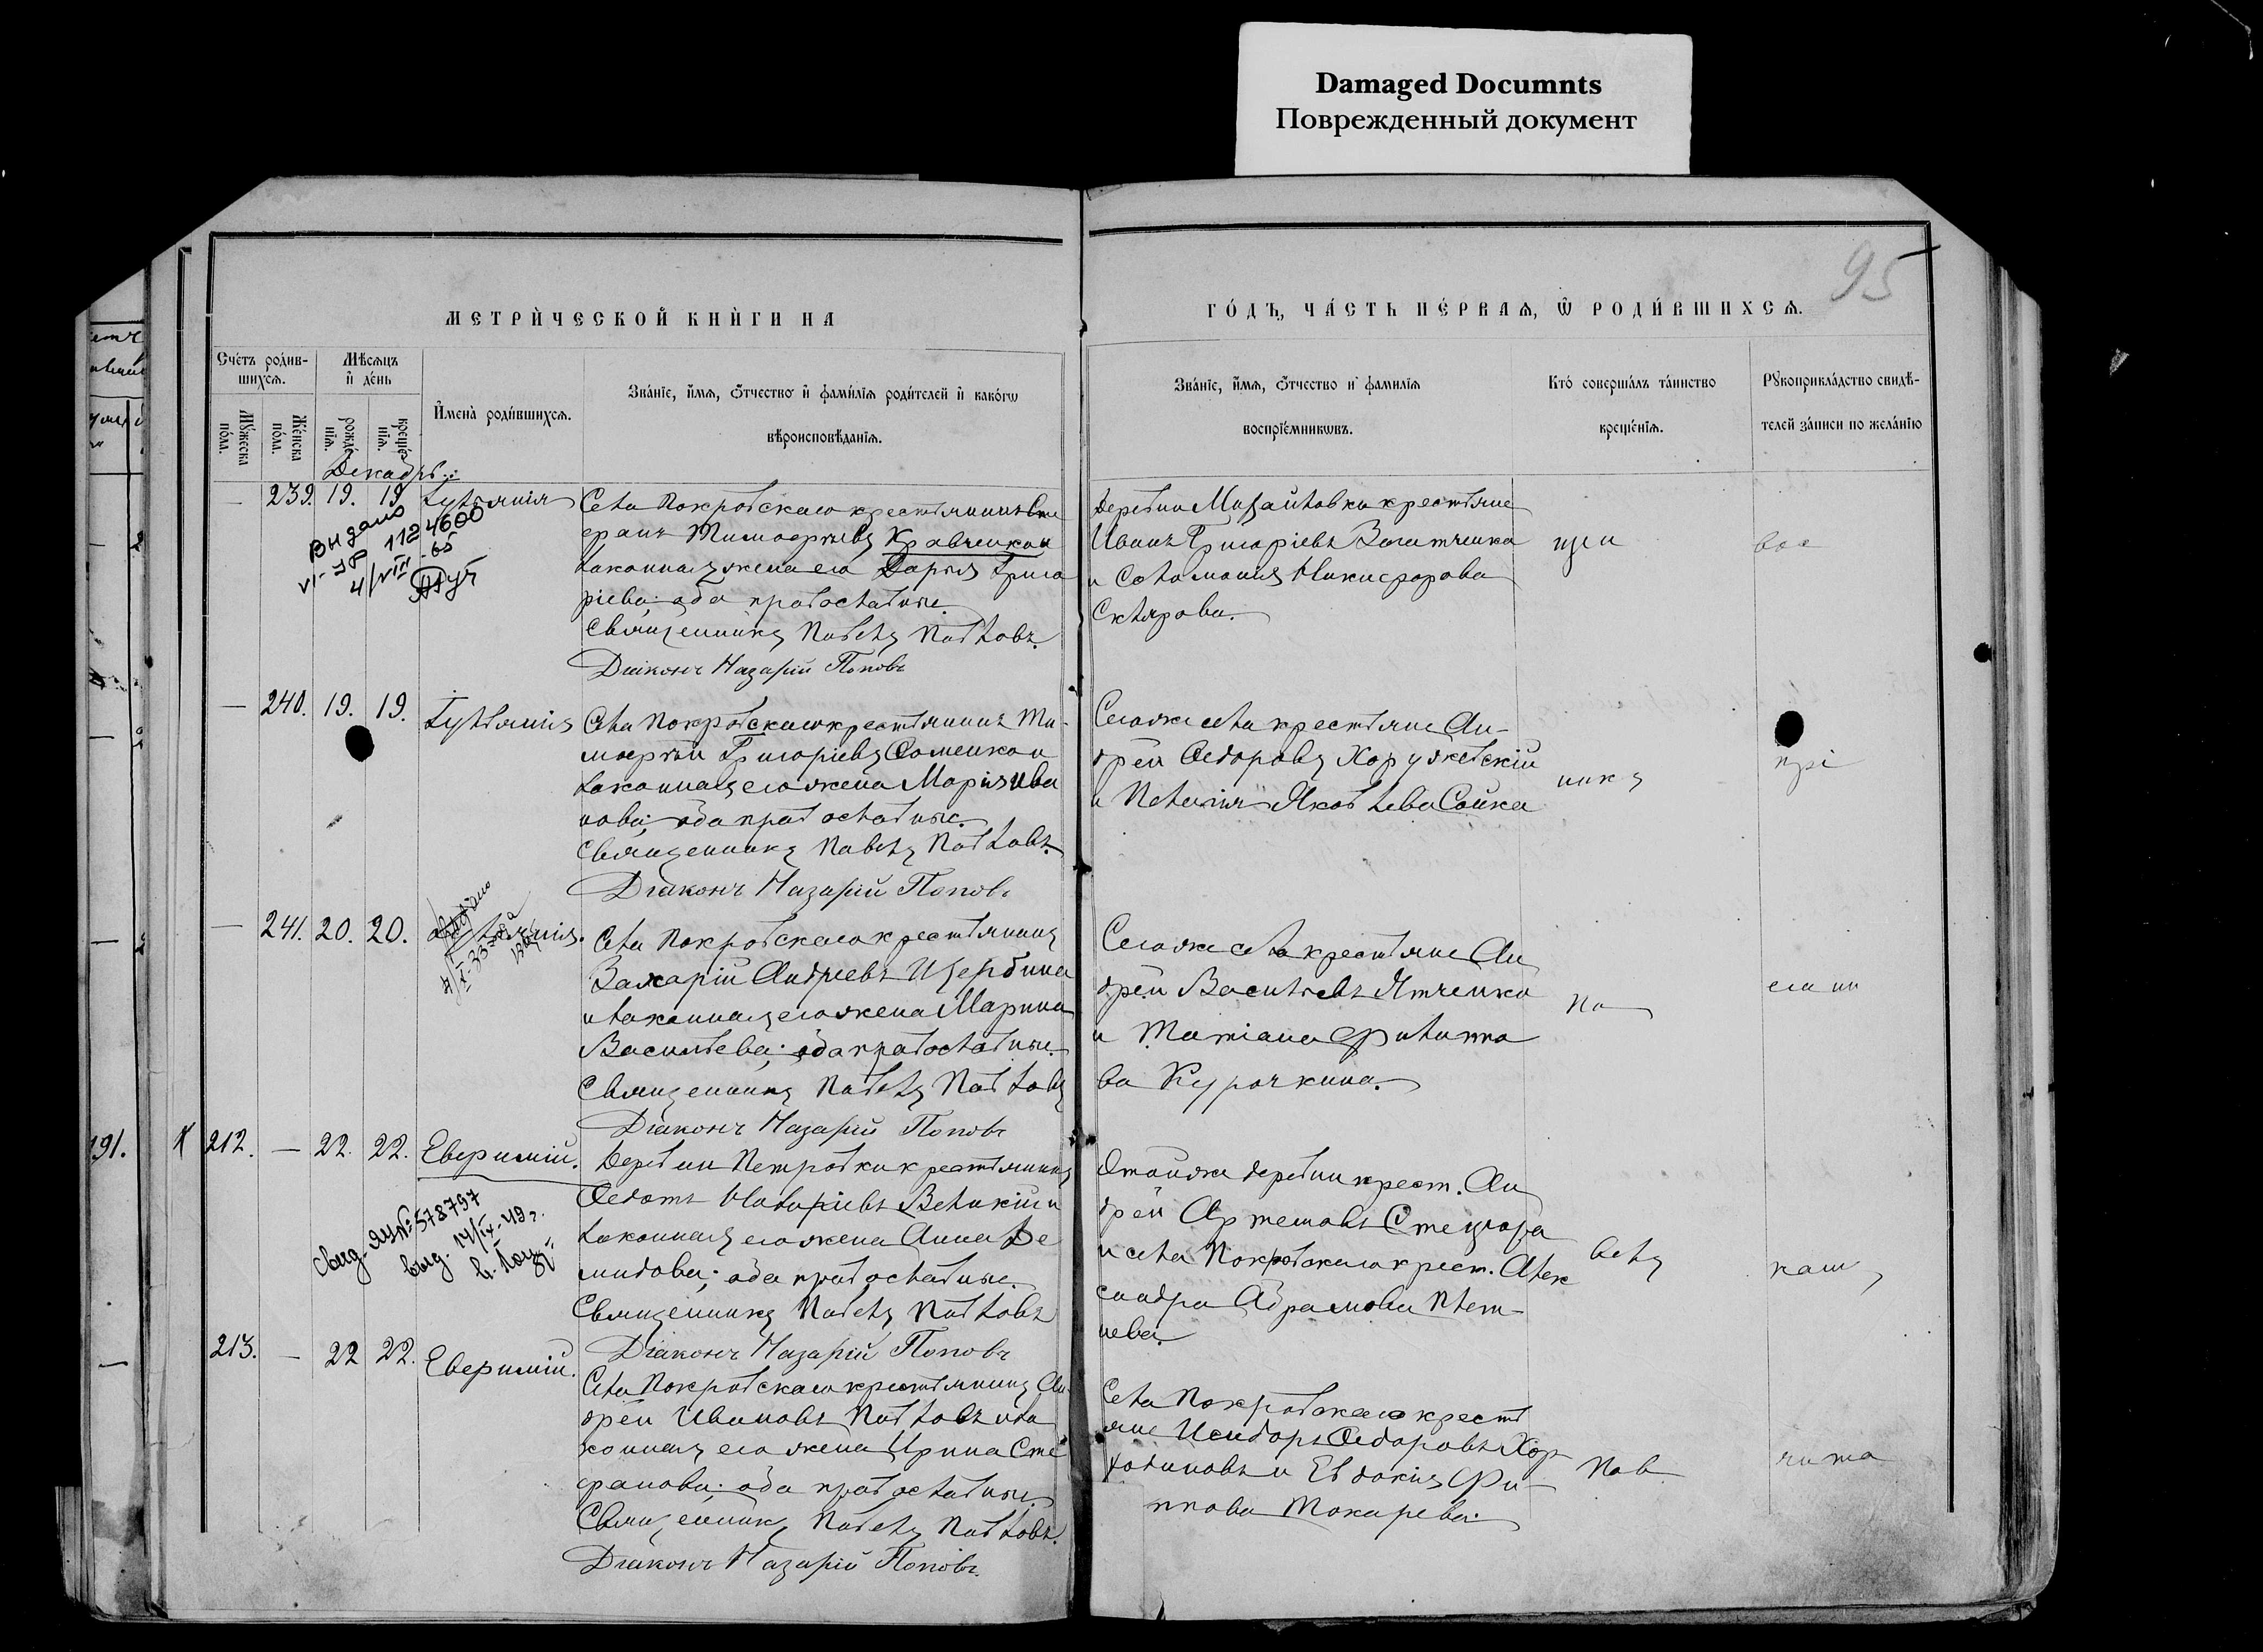 Damaged Documnts
Поврежденный документ
95
МЕТРИ́ЧЕСКОЙ КНИ́ГИ НА
ГО́ДЪ, ЧА́СТЬ ПЕ́РВАѦ, Ѿ РОДИ́ВШИХСѦ.
Сче́тъ роди́в-
шихсѧ.
Мѣсѧцъ
и̂ де́нь
Мꙋ́жеска
по́ла.
Же́нска
по́ла.
рожде́
нїѧ.
креще́
нїѧ.
И̂мена̀ роди́вшихсѧ.
Зва́нїе, и̂́мѧ, ѻ́тчество и̂ фами́лїѧ роди́телей и̂ како́гѡ
вѣроисповѣ́данїѧ.
Зва́нїе, и̂́мѧ, ѻ́тчество и̂ фами́лїѧ
воспрїе́мникѡвъ.
Кто́ соверша́лъ та́инство
креще́нїѧ.
Рꙋкоприкла́дство свидѣ́-
телей за́писи по жела́нїю
Декабрь:
239. 19. 19. Іуліанія
Выдано
VI-ЯР 1124600
4/VIII-65
Села Покровскаго крестьянинъ Сте
фанъ Тимофѣевъ Кравченко и
законная жена его Дарья Григо
ріева; оба православные.
Священникъ Павелъ Павловъ.
Діаконъ Назарій Поповъ
Деревни Михайловки крестьяне
Иванъ Григоріевъ Вагатченка
и Соломонія Никифорова
Склярова.
240. 19. 19. Іуліанія
Села Покровскаго крестьянинъ Ти-
мофѣй Григоріевъ Соменко и
законная его жена Марія Ива
нова; оба православные.
Священникъ Павелъ Павловъ.
Діаконъ Назарій Поповъ
Сегоже села крестьяне Ан-
дрей Ѳедоровъ Хоружевскій
и Пелагія Яковлева Сайка
никъ
прі
241. 20. 20.
Села Покровскаго крестьянинъ
Захарій Андреевъ Щербина
и законная его жена Марина
Васильева; оба православные.
Священникъ Павелъ Павловъ
Діаконъ Назарій Поповъ
Сегоже села крестьяне Ан
дрей Васильевъ Ятченко
и Татіана Филиппо
ва Курочкина.
Па
191.
212. — 22. 22. Евфимій.
свид. ЯУ № 578797
выд. 14/IX-49 г.
Деревни Петровки крестьянинъ
Ѳедотъ Макаріевъ Великій и
законная его жена Анна Де
мидова; оба православные.
Священникъ Павелъ Павловъ
Діаконъ Назарій Поповъ
Этойже деревни крест. Ан
дрей Артемовъ Стецюра
и села Покровскаго крест. Алек
сандра Абрамова Плет-
нева.
велъ
213. — 22 22. Евфимій.
Села Покровскаго крестьянинъ Ан
дрей Ивановъ Павловъ и за
конная его жена Ирина Сте
фанова; оба православные.
Священникъ Павелъ Павловъ.
Діаконъ Назарій Поповъ.
Села Покровскаго крестъ
яне Исидоръ Ѳедоровъ Хор
и Евдокія Фи-
ппова Токарева.
Пав